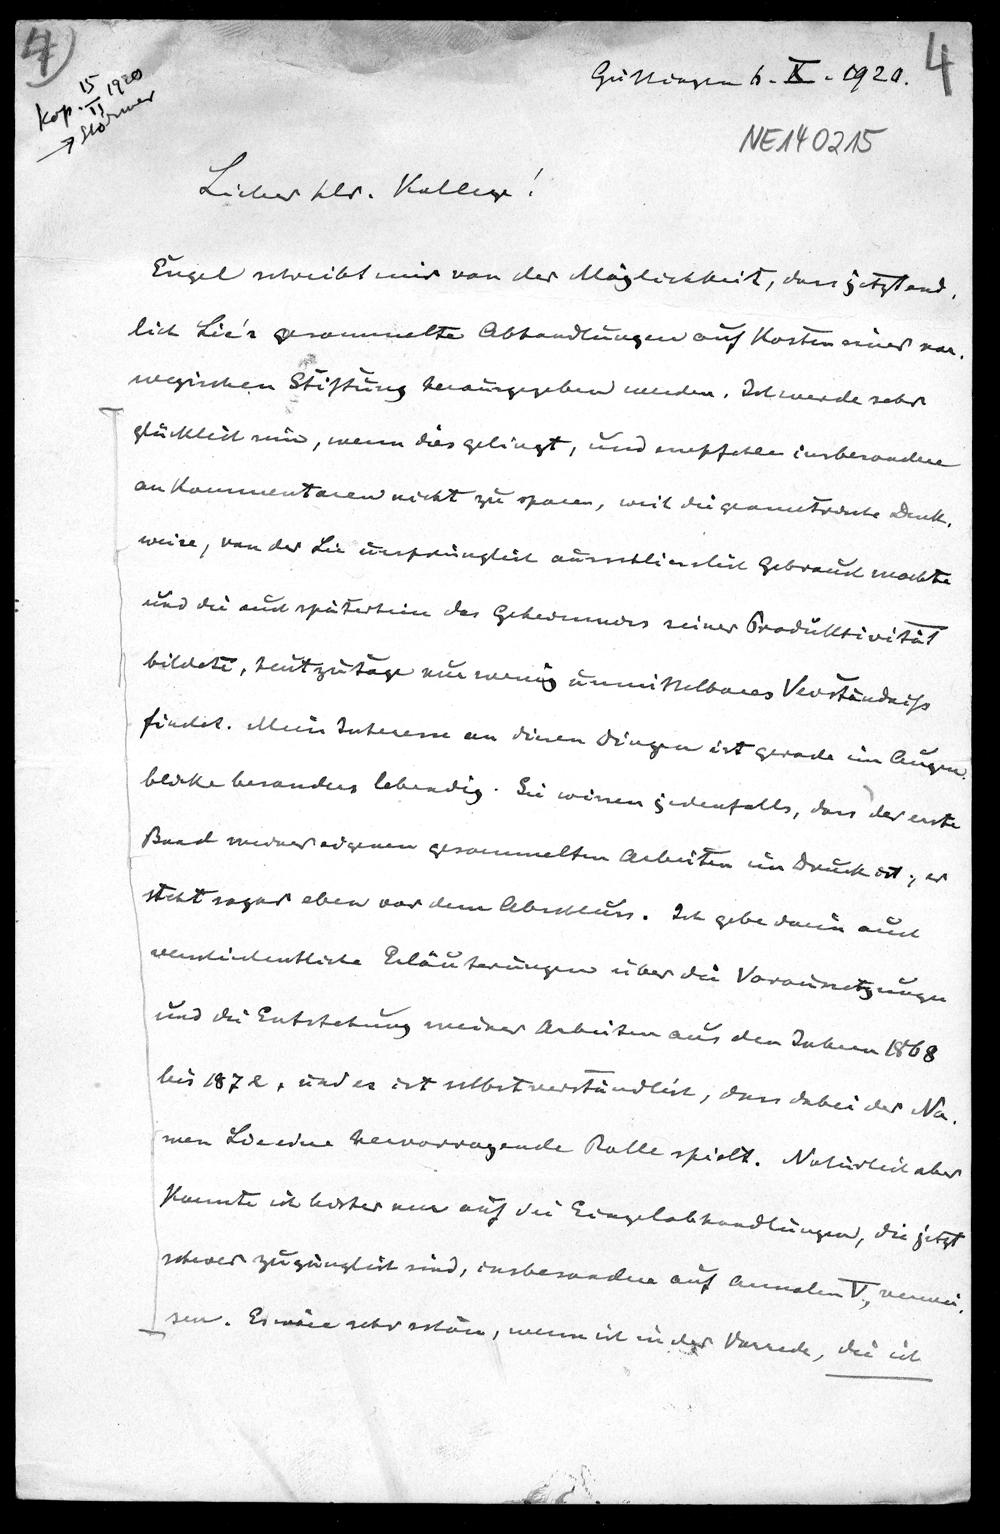 4)
4
Kop. 15/II 1920
→ Størmer
Göttingen 6. X. 1920.
NE140215
Lieber Hr. Kollege!
Engel schreibt mir von der Möglichkeit, dass jetzt end-
lich Lie's gesammelte Abhandlungen auf Kosten einer nor-
wegischen Stiftung herausgegeben werden. Ich werde sehr
glücklich sein, wenn dies gelingt, und empfehle insbesondere
an Kommentaren nicht zu sparen, weil die geometrische Denk-
weise, von der Lie ursprünglich ausschliesslich Gebrauch machte
und die auch späterhin das Geheimnis seiner Produktivität
bildete, heutzutage nur wenig unmittelbares Verständniss
findet. Mein Interesse an diesen Dingen ist gerade im Augen-
blicke besonders lebendig. Sie wissen jedenfalls, dass der erste
Band meiner eigenen gesammelten Arbeiten im Druck ist; er
steht sogar eben vor dem Abschluss. Ich gebe darin auch
verschiedentliche Erläuterungen über die Voraussetzungen
und die Entstehung meiner Arbeiten aus den Jahren 1868
bis 1872, und es ist selbstverständlich, dass dabei der Na-
men Lie eine hervorragende Rolle spielt. Natürlich aber
konnte ich bisher nur auf die Einzelabhandlungen, die jetzt
schwer zugänglich sind, insbesondere auf Annalen V, verwei-
sen. Es wäre sehr schön, wenn ich in der Vorrede, die ich